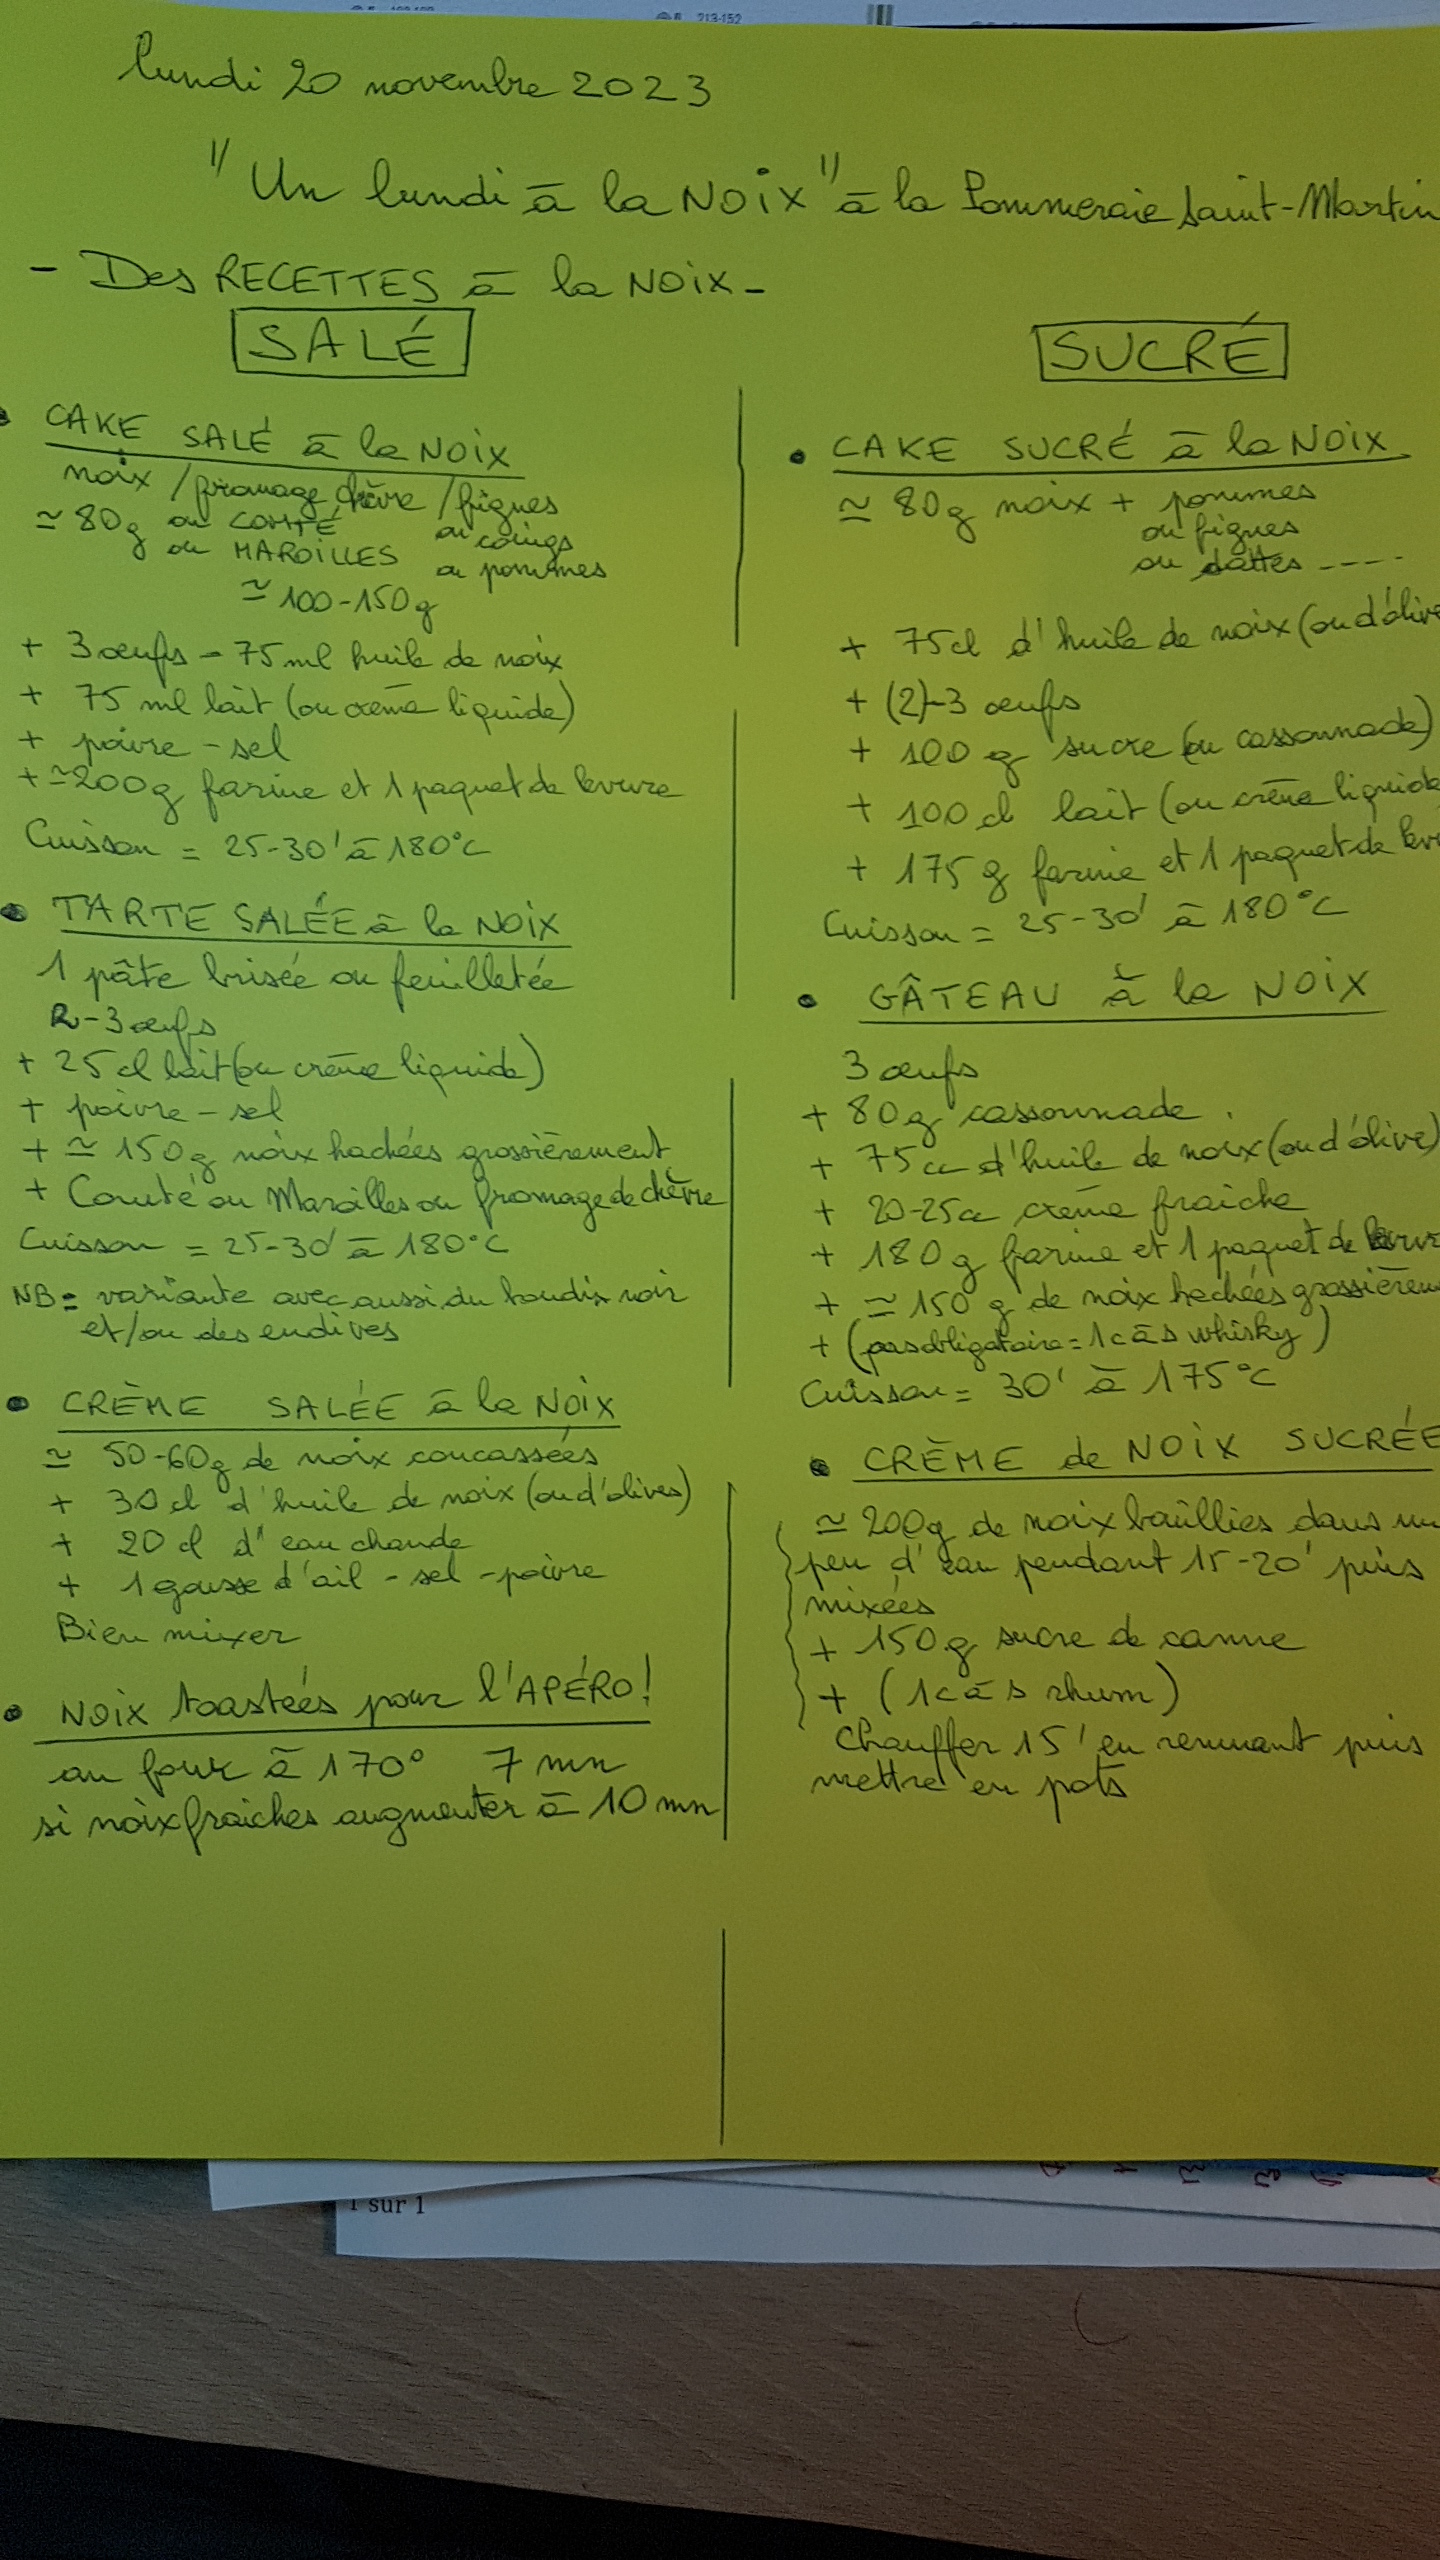 213-152
lundi 20 novembre 2023
"Un lundi à la NOIX" à la Pommeraie Saint-Martin
- Des RECETTES à la NOIX -
SALÉ
• CAKE SALÉ à la NOIX
noix / fromage chèvre / figues
≃ 80g ou COMTÉ ou coings
ou MAROILLES ou pommes
≃ 100-150g
+ 3 œufs - 75 ml huile de noix
+ 75 ml lait (ou crème liquide)
+ poivre - sel
+ ≃ 200g farine et 1 paquet de levure
Cuisson = 25-30' à 180°C
• TARTE SALÉE à la NOIX
1 pâte brisée ou feuilletée
2-3 œufs
+ 25 cl lait (ou crème liquide)
+ poivre - sel
+ ≃ 150g noix hachées grossièrement
+ Comté ou Maroilles ou fromage de chèvre
Cuisson = 25-30' à 180°C
NB = variante avec aussi du boudin noir
et/ou des endives
• CRÈME SALÉE à la NOIX
≃ 50-60g de noix concassées
+ 30 cl d'huile de noix (ou d'olives)
+ 20 cl d'eau chaude
+ 1 gousse d'ail - sel - poivre
Bien mixer
• NOIX toastées pour l'APÉRO!
au four à 170° 7 mn
si noix fraiches augmenter à 10 mn
SUCRÉ
• CAKE SUCRÉ à la NOIX
≃ 80g noix + pommes
ou figues
ou dattes ----
+ 75cl d'huile de noix (ou d'olive
+ (2)-3 œufs
+ 100 g sucre (ou cassonnade)
+ 100 cl lait (ou crème liquide
+ 175 g farine et 1 paquet de lev
Cuisson = 25-30' à 180°C
• GÂTEAU à la NOIX
3 œufs
+ 80g cassonnade.
+ 75 cc d'huile de noix (ou d'olive)
+ 20-25cc crème fraiche
+ 180 g farine et 1 paquet de levur
+ ≃ 150 g de noix hachées grossièrem
+ (pas obligatoire = 1 c à s whisky)
Cuisson = 30' à 175°C
• CRÈME de NOIX SUCRÉE
≃ 200g de noix bouillies dans un
peu d'eau pendant 15-20' puis
mixées
+ 150g sucre de canne
+ (1 c à s rhum)
Chauffer 15' en remuant puis
mettre en pots
1 sur 1